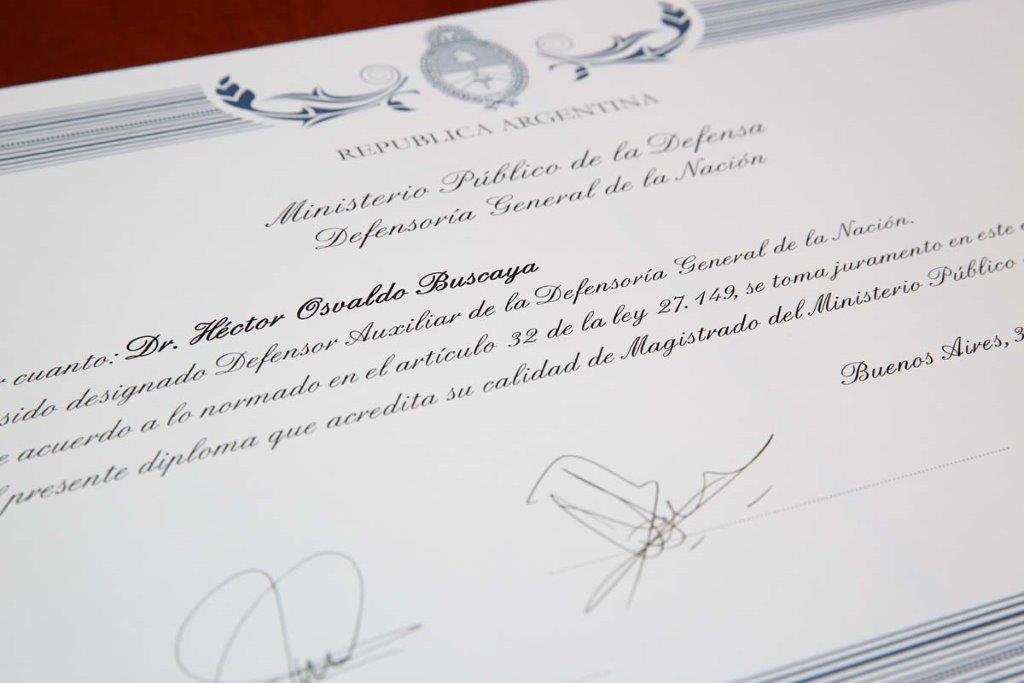 REPUBLICA ARGENTINA
Ministerio Público de la Defensa
Defensoría General de la Nación
cuanto: Dr. Héctor Osvaldo Buscaya
sido designado Defensor Auxiliar de la Defensoría General de la Nación.
acuerdo a lo normado en el artículo 32 de la ley 27.149, se toma juramento en este
presente diploma que acredita su calidad de Magistrado del Ministerio Público
Buenos Aires, 3